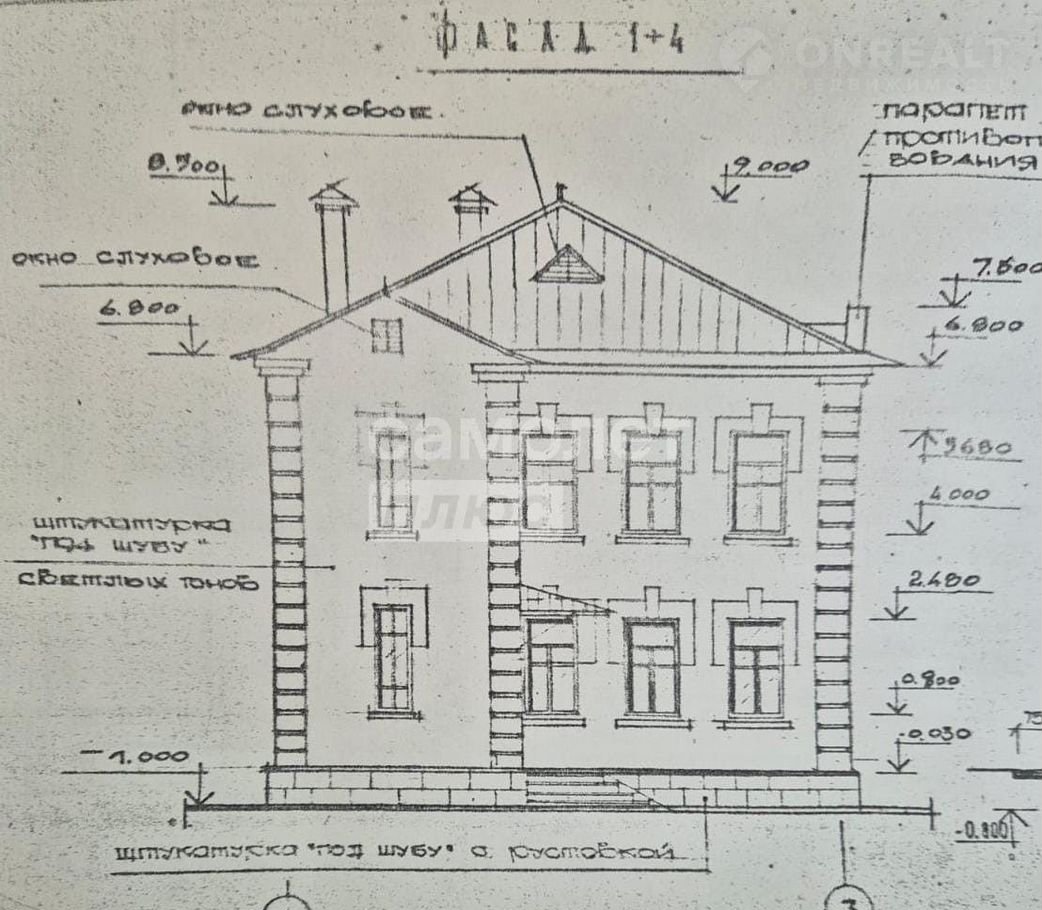 ФАСАД 1÷4
ONREALT
окно слуховое.
парапет
противоп
вования
8.700
9.000
окно слуховое
7.500
6.800
6.800
самолет
плюс
5680
4.000
штукатурка
"под шубу"
светлых тонов
2.480
0.800
-0.030
-1.000
-0.800
штукатурка "под шубу" с рустовкой
3